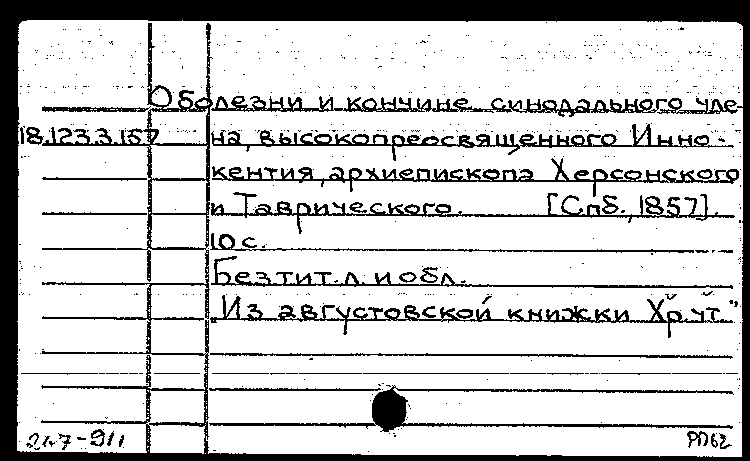 О болезни и кончине синодального чле-
18.123.3.157 на, высокопреосвященного Инно-
кентия, архиепископа Херсонского
и Таврического. [Спб., 1857].
10 с.
Без тит. л. и обл.
"Из августовской книжки Хр. чт."
247-911 РП62